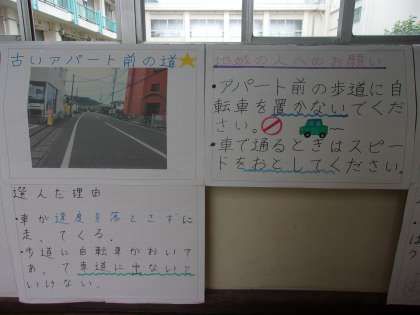 古いアパート前の道
選んた理由
・車が速度を落とさずに
走ってくる。
・歩道に自転車がおいて
あって車道に出ないと
いけない。
地域の人へのお願い
・アパート前の歩道に自
転車を置かないでくだ
さい。
・車で通るときはスピー
ドをおとしてください。